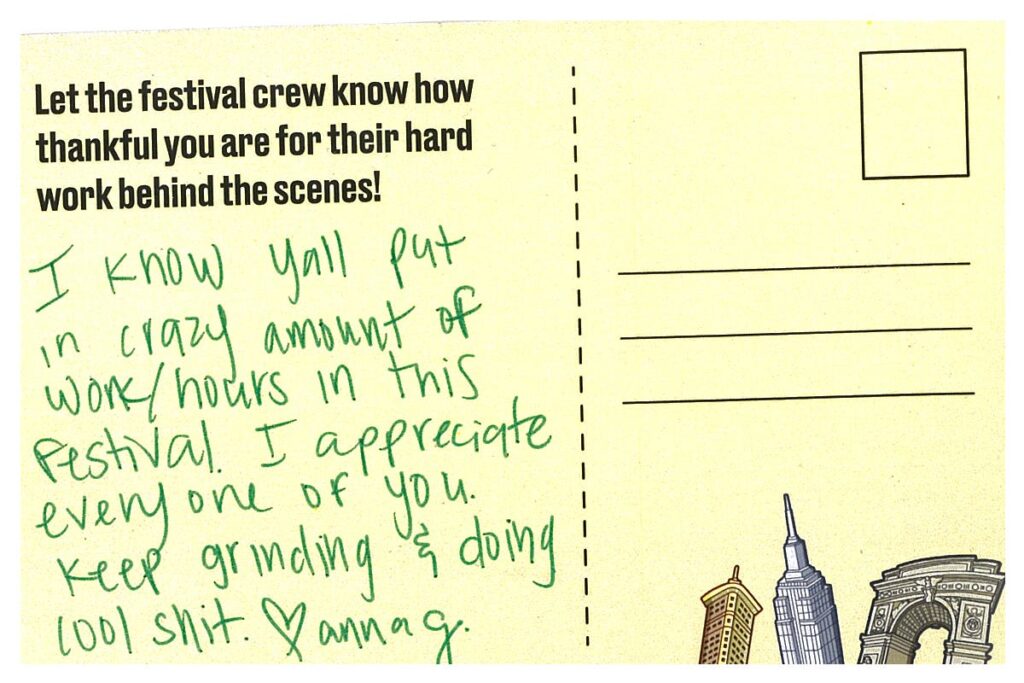 Let the festival crew know how
thankful you are for their hard
work behind the scenes!
I know yall put
in crazy amount of
work/hours in this
Festival. I appreciate
every one of you.
Keep grinding & doing
cool shit. ♡ anna g.